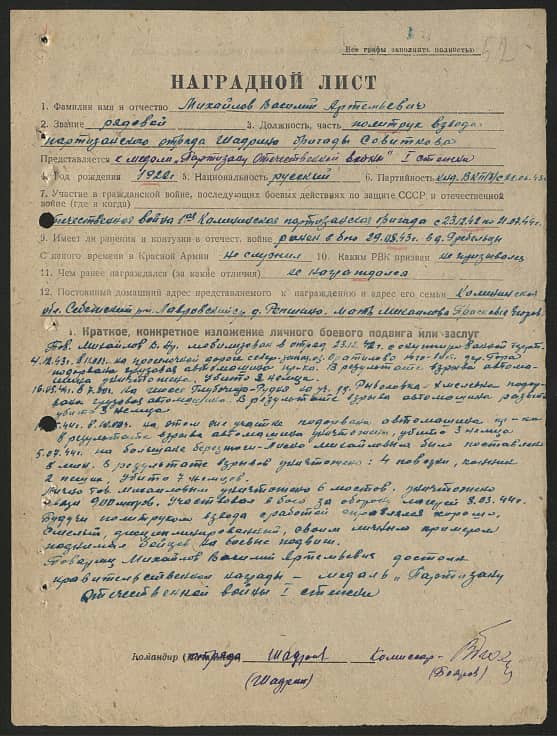 Все графы заполнить полностью
НАГРАДНОЙ ЛИСТ
1. Фамилия имя и отчество Михайлов Василий Артемьевич
2. Звание рядовой 3. Должность, часть политрук взвода
партизанского отряда Шадрина бригады
Представляется к медали „Партизану Отечественной войны" I степени
4. Год рождения 5. Национальность русский 6. Партийность канд. ВКП(б)
7. Участие в гражданской войне, последующих боевых действиях по защите СССР и отечественной
войне (где и когда)
Отечественная война 1ая Калининская партизанская бригада с
9. Имеет ли ранения и контузии в отечест. войне ранен в бою 29.08.43г. в д.
С какого времени в Красной Армии не служил 10. Каким РВК призван не призывался
11. Чем ранее награждался (за какие отличия) не награждался
12. Постоянный домашний адрес представляемого к награждению и адрес его семьи Калининская
обл. Себежский р-н д. Мать Михайлова
I. Краткое, конкретное изложение личного боевого подвига или заслуг
Тов. Михайлов В. мобилизован в отряд 23.12.42г. с оккупированной
4.12.43г. подорвана грузовая автомашина пр-ка. В результате взрыва автома-
шина уничтожена. Убито 3 немца.
на шоссе подор-
вана грузовая автомашина. В результате взрыва автомашина разбита
убито 3 немца
на этом же участке подорвана автомашина пр-ка
в результате взрыва автомашина уничтожена, убито 3 немца
5.07.44г. на большаке было поставлено
8 мин. В результате взрывов уничтожено: 4 повозки, конных
2 пеших. Убито 7 немцев.
Лично тов. Михайловым уничтожено 6 мостов. уничтожено
900 метров. Участвовал в бою за оборону лагеря 8.03.44г.
Будучи политруком взвода с работой справлялся хорошо.
Смелый, дисциплинированный, своим личным примером
поднимал бойцов на боевые подвиги.
Товарищ Михайлов Василий Артемьевич достоин
правительственной награды – медаль „Партизану
Отечественной войны I степени
Командир отряда Шадрин Комиссар-
(Шадрин)